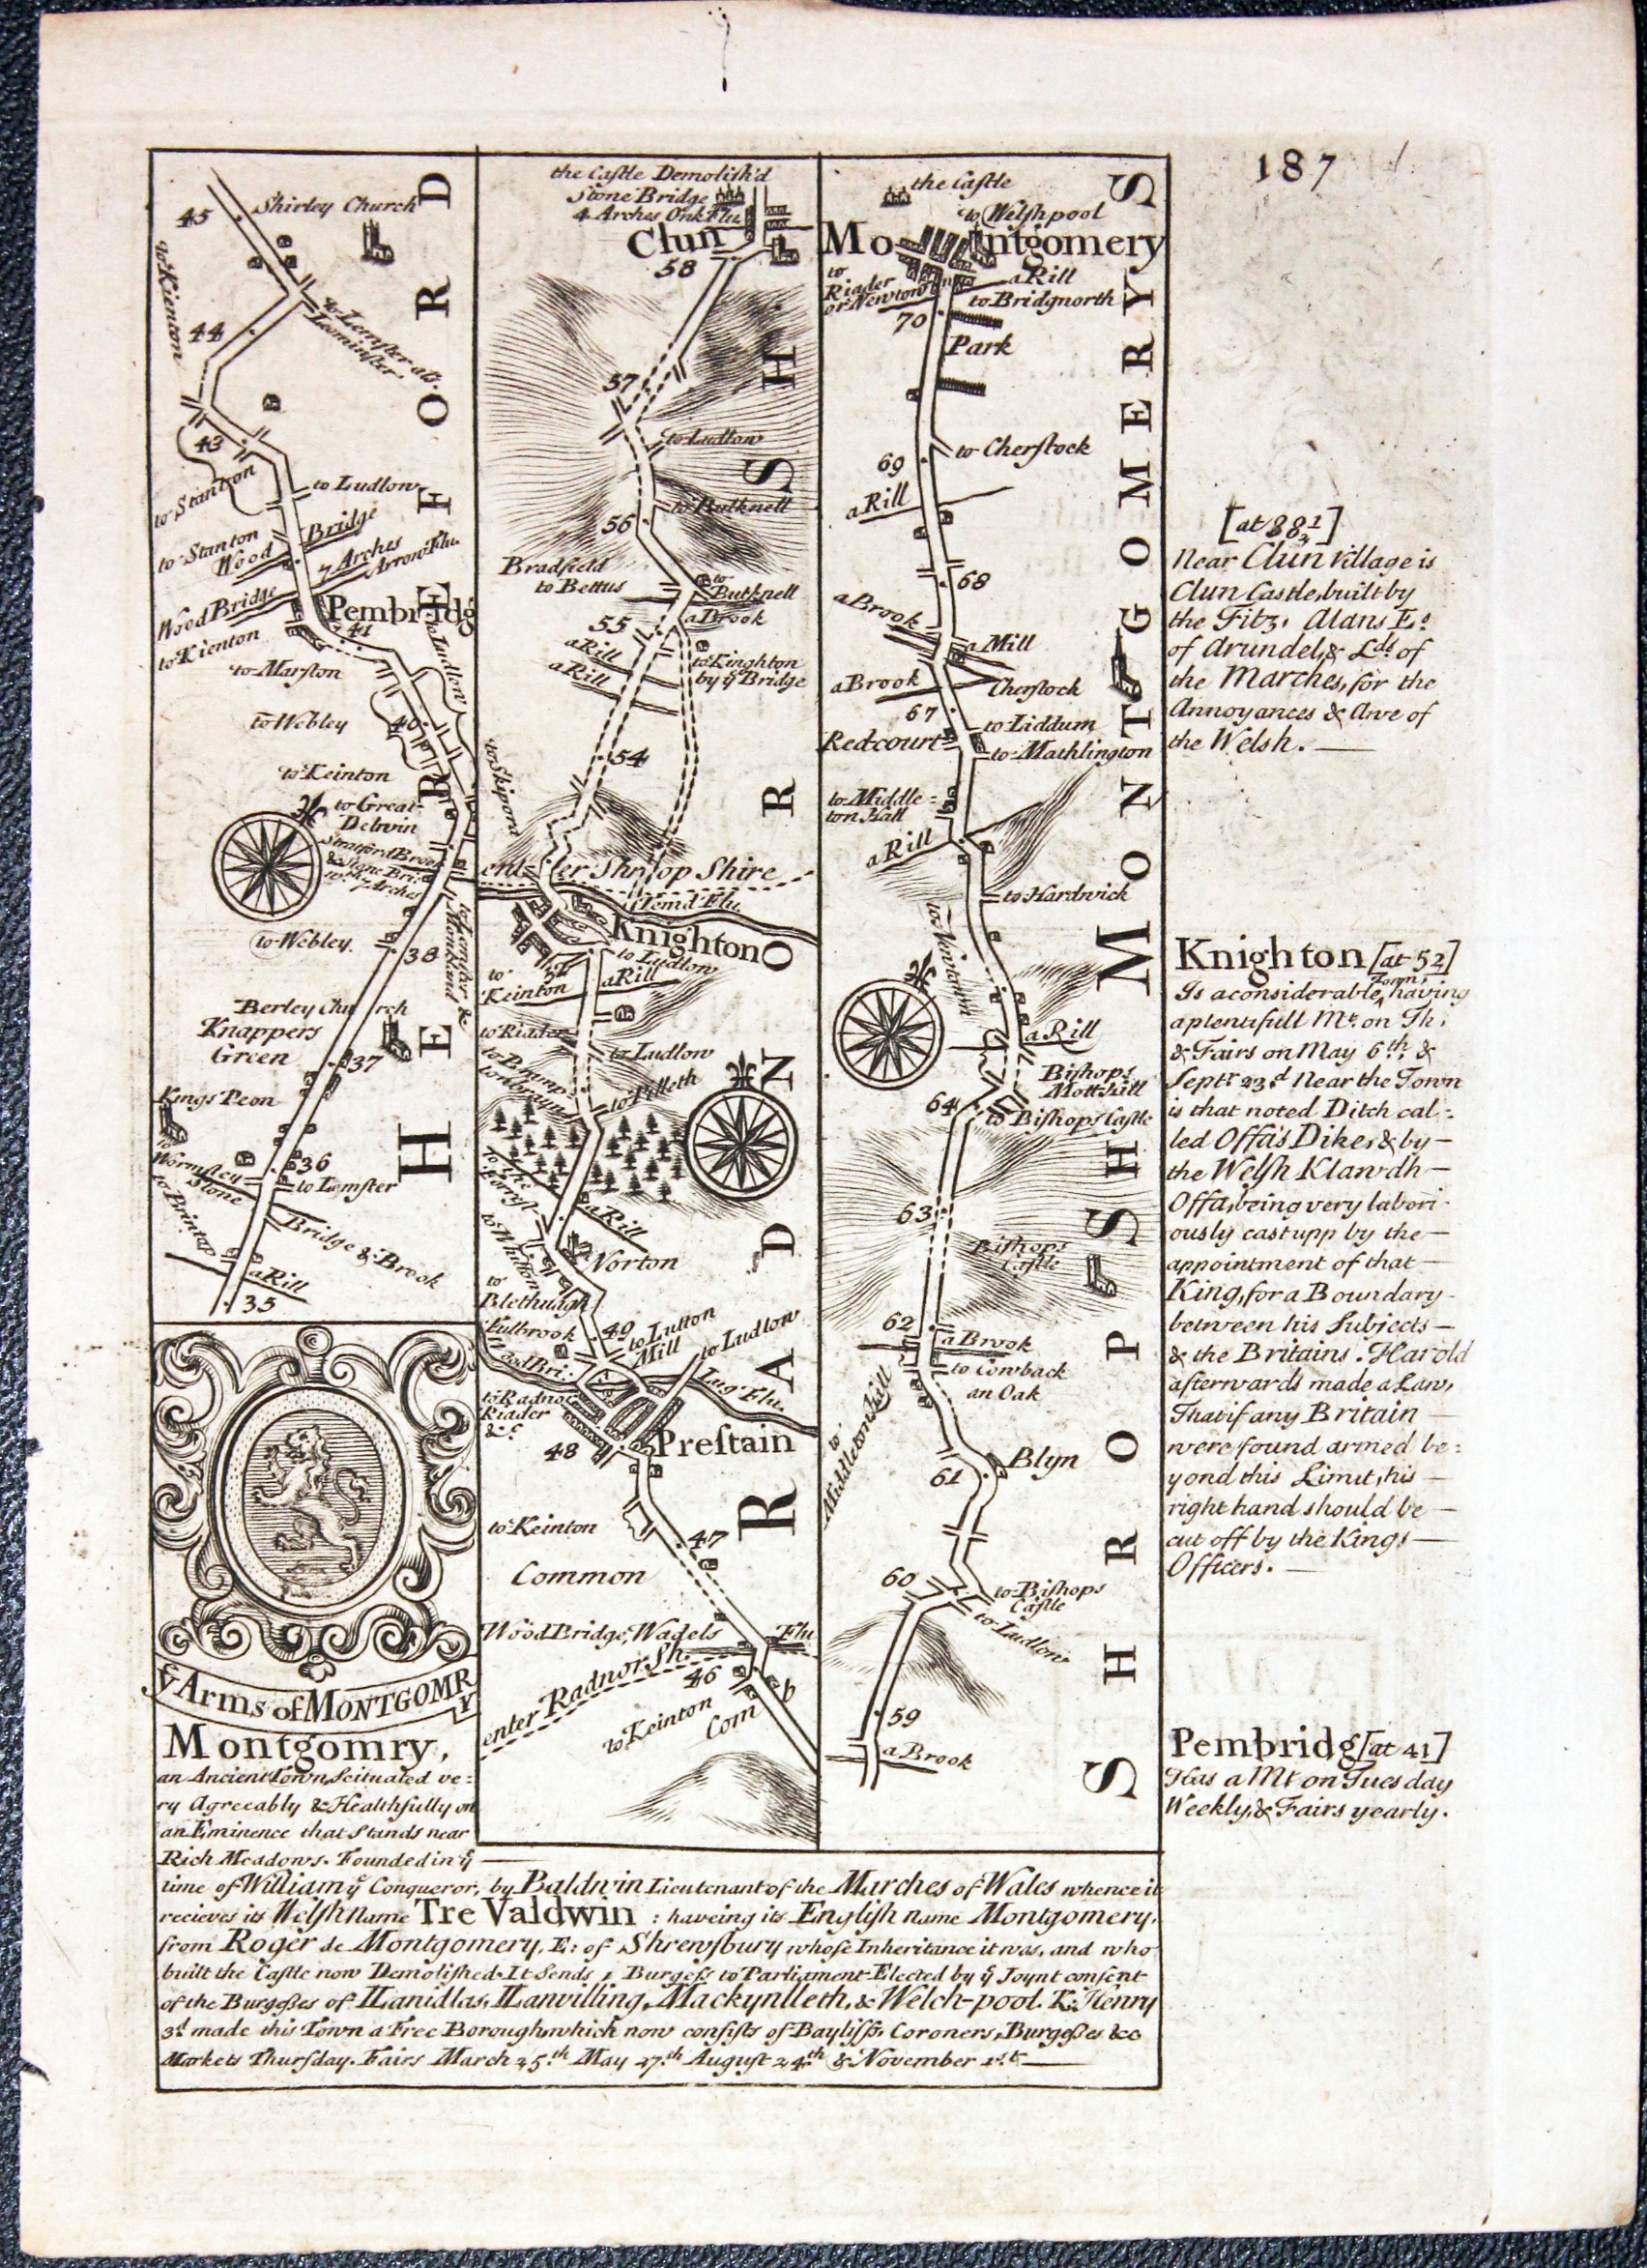 187
45
Shirley Church
to Kienton
44
to Lemster als.
Leominster.
43
to Stanton
to Ludlow
to Stanton
Wood
Bridge
7 Arches
Arrow Flu.
Wood Bridge
to Kienton
Pembridg
41
to Marston
to Ludlow
to Webley
40
to Keinton
to Great
Delwin
Stretford Brook
& Stone Bri:
wth 7 Arches
to Webley.
38
to Lemster &
Monkland
Berley Church
Knappers
Green
37
Kings Peon
36
to Lemster
Wormsley
Stone
to Brintop
Bridge & Brook
a Rill
35
HEREFORD
the Castle Demolish'd
Stone Bridge
4 Arches Onk Flu.
Clun
58
57
to Ludlow
to Butknell
56
Bradfield
to Bettus
to
Butknell
a Brook
55
a Rill
a Rill
to Kinghton
by ye Bridge
54
to Skipord
enter Shropshire
Temd Flu.
Knighton
to Ludlow
52
to
Keinton
a Rill
to Riader
to Ludlow
to Pilleth
to the
Forrest
a Rill
to Whitton
Norton
to
Blethuagh
Fulbrook
49
to Lutton
Mill
to Ludlow
Lug Flu.
to Radnor
Riader
&c
48
Prestain
to Keinton
47
Common
Wood Bridge, Wadels
Flu
enter Radnor Sh.
46
to Keinton
Com
b
RADNOR
SH
the Castle
to Welshpool
Montgomery
to
Riader
or Newtown
a Rill
to Bridgnorth
70
Park
to Cherstock
69
a Rill
68
a Brook
a Mill
a Brook
Cherstock
67
to Liddum
Redcourt
to Mathlington
to Middle=
ton Hall
a Rill
to Hardwick
to Newtown
a Rill
Bishops
Mottshill
64
to Bishops Castle
63
Bishops
Castle
62
a Brook
to Cowback
an Oak
to
Middleton Hill
61
Blyn
60
to Bishops
Castle
to Ludlow
59
a Brook
SHROPSH
MONTGOMERYS
[at 88 1/3]
Near Clun Village is
Clun Castle, built by
the Fitz. Alans Es
of Arundel, & Lds of
the Marches, for the
Annoyances & Awe of
the Welsh.
Knighton [at 52]
Is a considerable Town, having
a plentifull Mt. on Th:
& Fairs on May 6th. &
Septr 23d Near the Town
is that noted Ditch cal=
led Offa's Dike, & by
the Welsh Klawdh
Offa, being very labori
ously cast upp by the
appointment of that
King, for a Boundary
between his Subjects
& the Britains. Harold
afterwards made a Law,
That if any Britain
were found armed be=
yond this Limit, his
right hand should be
cut off by the Kings
Officers.
Pembridg [at 41]
Has a Mt on Tuesday
Weekly, & Fairs yearly.
ye Arms of MONTGOMRY
Montgomry,
an Ancient Town, Scituated ve=
ry Agreeably & Healthfully on
an Eminence that Stands near
Rich Meadows. Founded in ye
time of William ye Conqueror, by Baldwin Lieutenant of the Marches of Wales whence it
recieves its Welsh name Tre Valdwin : haveing its English name Montgomery,
from Roger de Montgomery, E: of Shrewsbury whose Inheritance it was, and who
built the Castle now Demolished. It Sends 1 Burgess to Parliament Elected by ye Joynt consent
of the Burgesses of Llanidlas, Llanvilling, Mackynlleth, & Welch-pool. K. Henry
3d made this Town a Free Borough, which now consists of Bayliffs, Coroners, Burgesses &c
Markets Thursday. Fairs March 25th. May 27th. August 24th & November 1st.